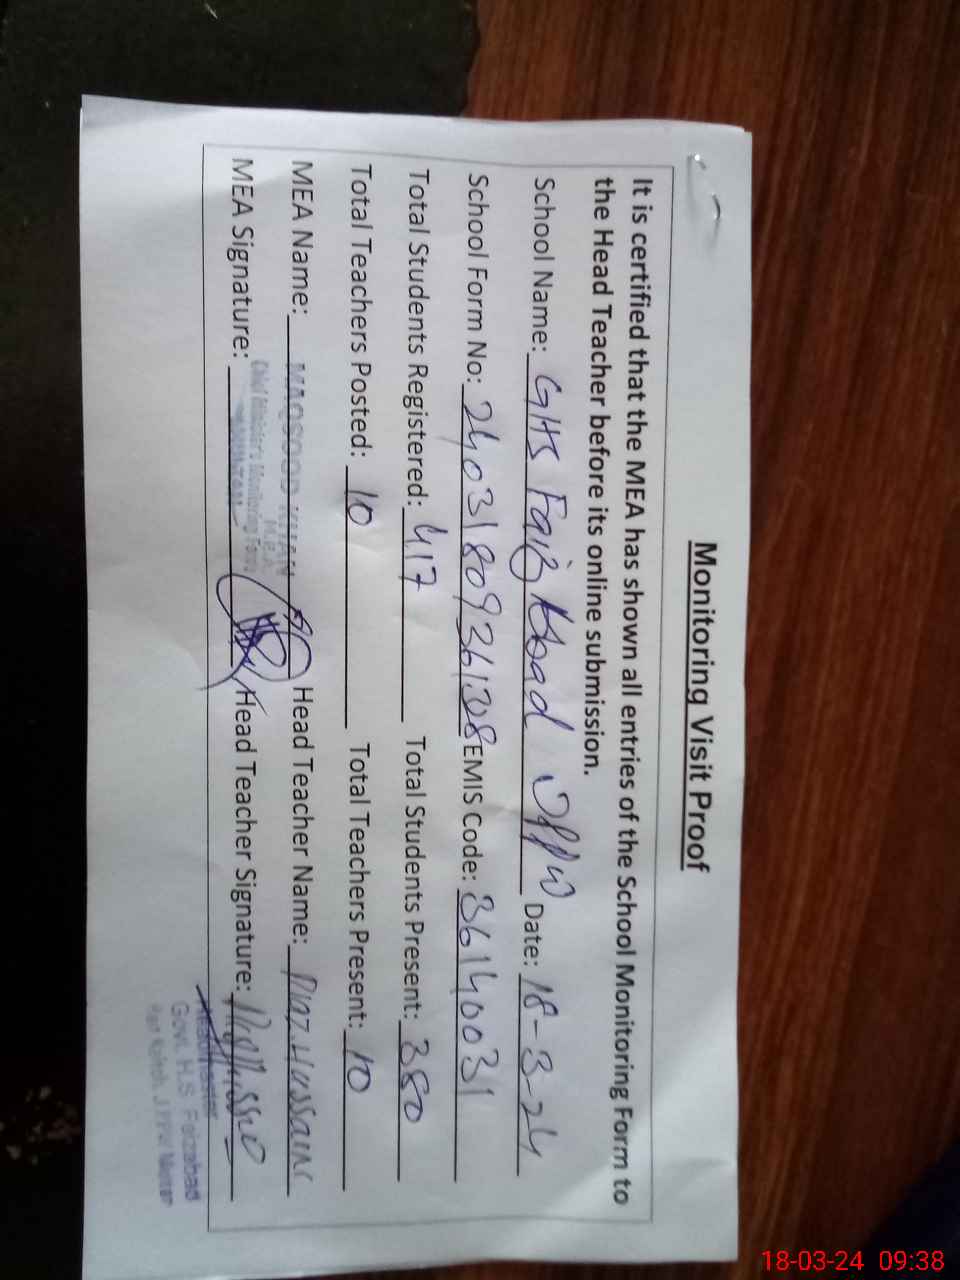 Monitoring Visit Proof
It is certified that the MEA has shown all entries of the School Monitoring Form to
the Head Teacher before its online submission.
School Name: GHS Faiz Abad Date: 18-3-24
School Form No: EMIS Code: 36140031
Total Students Registered: 417 Total Students Present: 380
Total Teachers Posted: 10 Total Teachers Present: 10
MEA Name: MAQSOOD KHAN Head Teacher Name: Hussain
M.E.A
Chief Minister's Monitoring Force
MEA Signature: Head Teacher Signature:
Govt. H.S Faizabad
18-03-24 09:38